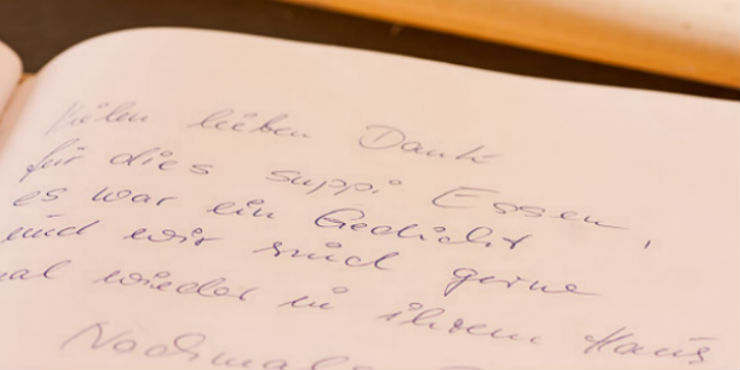 Vielen lieben Dank
für dies suppi Essen,
es war ein Gedicht
und wir sind gerne
mal wieder in ihrem Haus
Nochmals